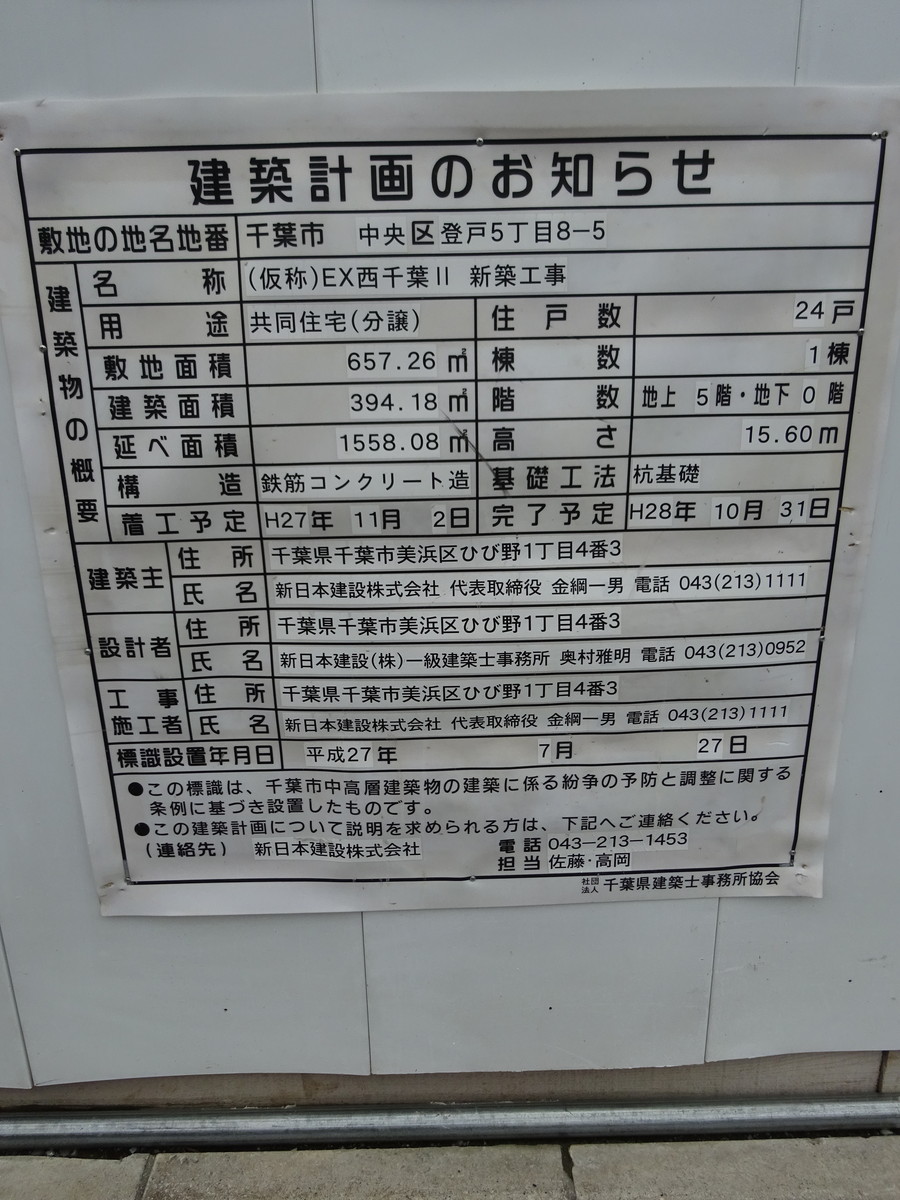 建築計画のお知らせ
敷地の地名地番 千葉市 中央区登戸5丁目8-5
建築物の概要
名称 (仮称)EX西千葉II 新築工事
用途 共同住宅(分譲) 住戸数 24戸
敷地面積 657.26㎡ 棟数 1棟
建築面積 394.18㎡ 階数 地上 5階・地下 0階
延べ面積 1558.08㎡ 高さ 15.60m
構造 鉄筋コンクリート造 基礎工法 杭基礎
着工予定 H27年 11月 2日 完了予定 H28年 10月 31日
建築主 住所 千葉県千葉市美浜区ひび野1丁目4番3
氏名 新日本建設株式会社 代表取締役 金綱一男 電話 043(213)1111
設計者 住所 千葉県千葉市美浜区ひび野1丁目4番3
氏名 新日本建設(株)一級建築士事務所 奥村雅明 電話 043(213)0952
工事施工者 住所 千葉県千葉市美浜区ひび野1丁目4番3
氏名 新日本建設株式会社 代表取締役 金綱一男 電話 043(213)1111
標識設置年月日 平成27年 7月 27日
●この標識は、千葉市中高層建築物の建築に係る紛争の予防と調整に関する
条例に基づき設置したものです。
●この建築計画について説明を求められる方は、下記へご連絡ください。
(連絡先) 新日本建設株式会社 電話 043-213-1453
担当 佐藤・高岡
社団法人 千葉県建築士事務所協会